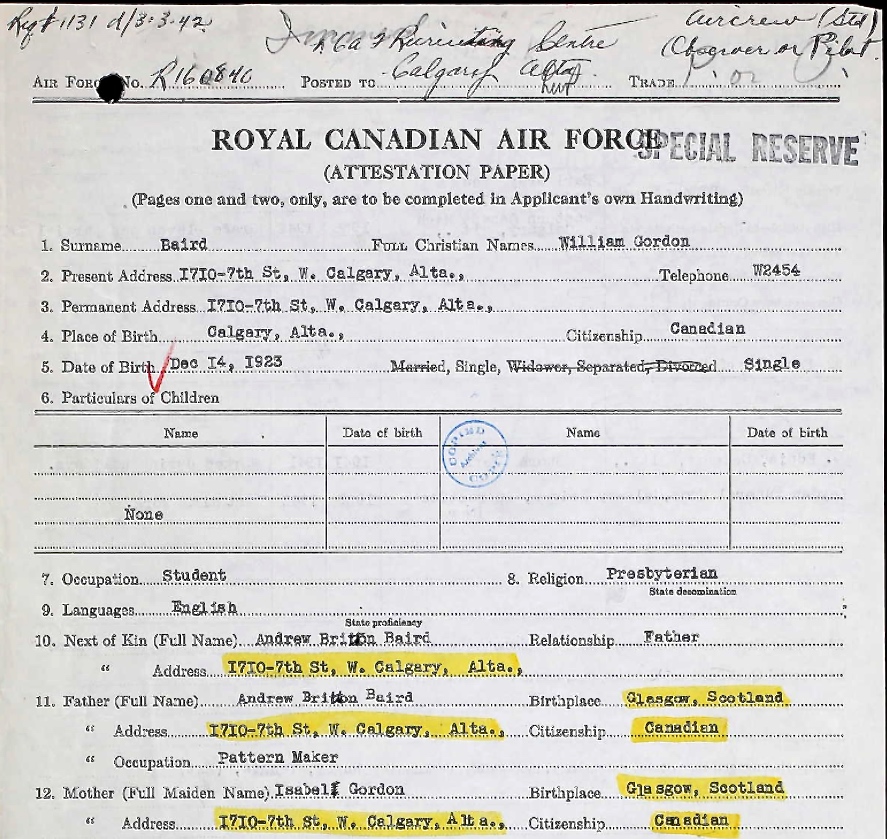 Reqt 1131 d/3-3-42
Aircrew (Std)
R.C.A.F Recruiting Centre
(Observer or Pilot
AIR FORCE No. R160840 POSTED TO Calgary Alta TRADE
ROYAL CANADIAN AIR FORCE SPECIAL RESERVE
(ATTESTATION PAPER)
(Pages one and two, only, are to be completed in Applicant's own Handwriting)
1. Surname Baird FULL Christian Names William Gordon
2. Present Address 1710-7th St, W. Calgary, Alta., Telephone W2454
3. Permanent Address 1710-7th St, W. Calgary, Alta.,
4. Place of Birth Calgary, Alta., Citizenship Canadian
5. Date of Birth Dec 14, 1923 Married, Single, Widower, Separated, Divorced Single
6. Particulars of Children
Name Date of birth Name Date of birth
COPIED
None
7. Occupation Student 8. Religion Presbyterian
State denomination
9. Languages English
State proficiency
10. Next of Kin (Full Name) Andrew Britton Baird Relationship Father
" Address 1710-7th St, W. Calgary, Alta.,
11. Father (Full Name) Andrew Britton Baird Birthplace Glasgow, Scotland
" Address 1710-7th St, W. Calgary, Alta., Citizenship Canadian
" Occupation Pattern Maker
12. Mother (Full Maiden Name) Isabell Gordon Birthplace Glasgow, Scotland
" Address 1710-7th St, W. Calgary, Alta., Citizenship Canadian